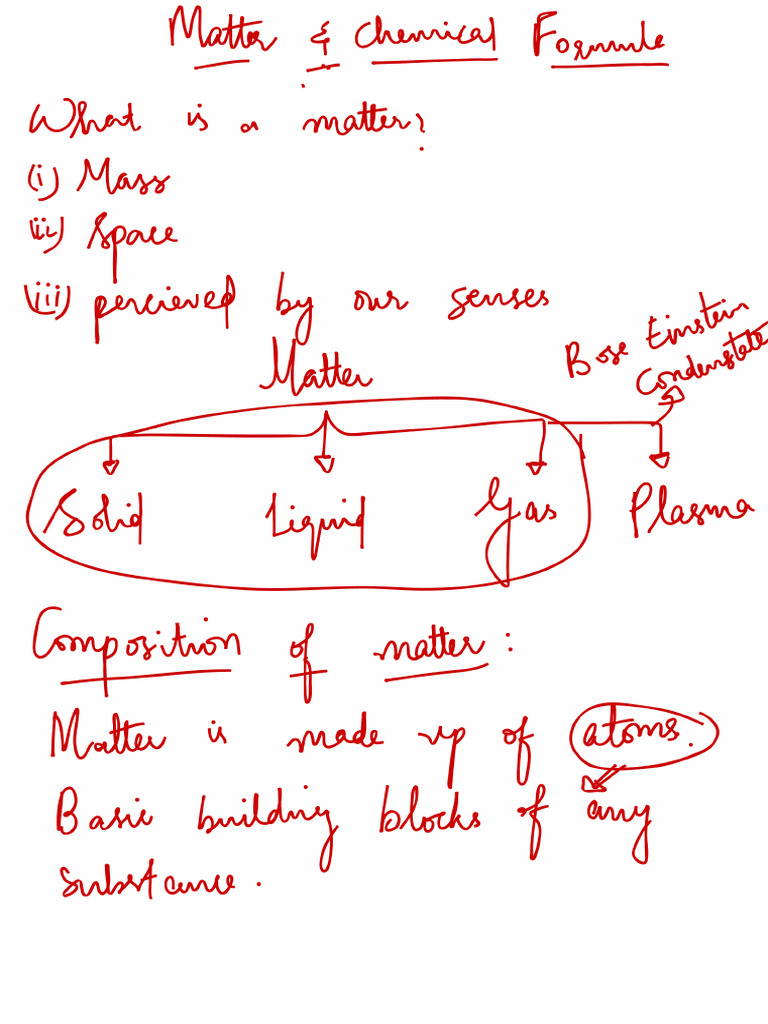 Matter & Chemical Formule
What is a matter?
(i) Mass
(ii) Space
(iii) percieved by our senses
Bose Einstein
Condenstate
Matter
Solid Liquid Gas Plasma
Composition of matter:
Matter is made up of atoms.
Basic building blocks of any
substance.